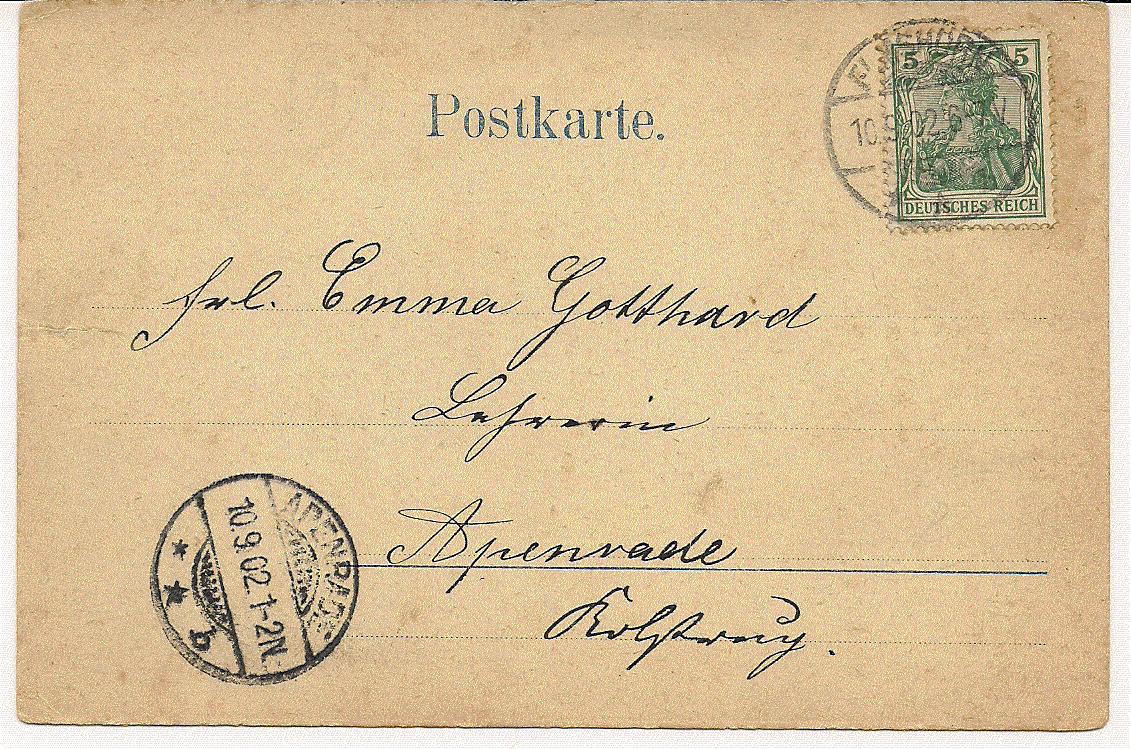 Postkarte.
5 5
DEUTSCHES REICH
10.9.02
Frl. Emma Gotthard
Lehrerin
Apenrade
Kolstrup.
APENRADE
10.9.02.1-2N.
* * b